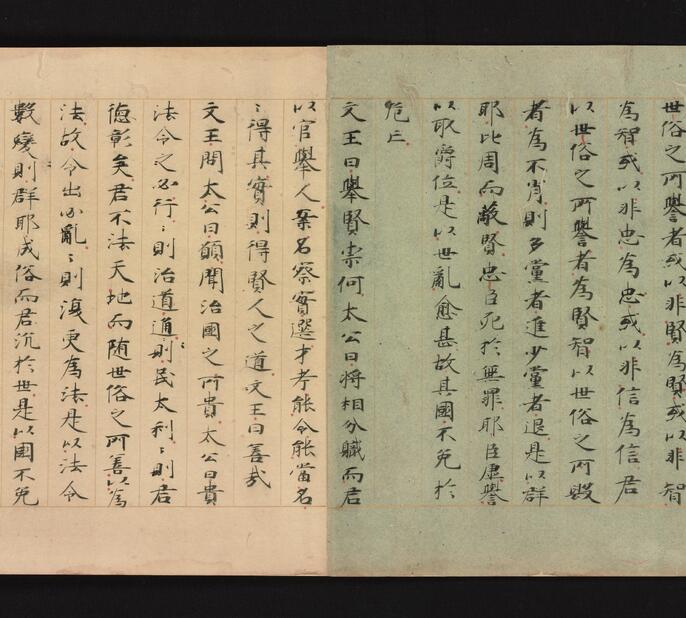 世俗之所譽者或以非賢為賢或以非智
為智或以非忠為忠或以非信為信君
以世俗之所譽者為賢智以世俗之所毀
者為不肖則多黨者進少黨者退是以群
耶比周而蔽賢忠臣死於無罪耶臣虛譽
以取爵位是以世亂愈甚故其國不免於
危亡
文王曰舉賢柰何太公曰將相分職而君
以官舉人案名察實選才考能令能當名
〻得其實則得賢人之道文王曰善哉
文王問太公曰願聞治國之所貴太公曰貴
法令之必行〻則治道通〻則民太利〻則君
德彰矣君不法天地而随世俗之所善以為
法故令出必亂〻則復更為法是以法令
數變則群耶成俗而君沉於世是以國不免